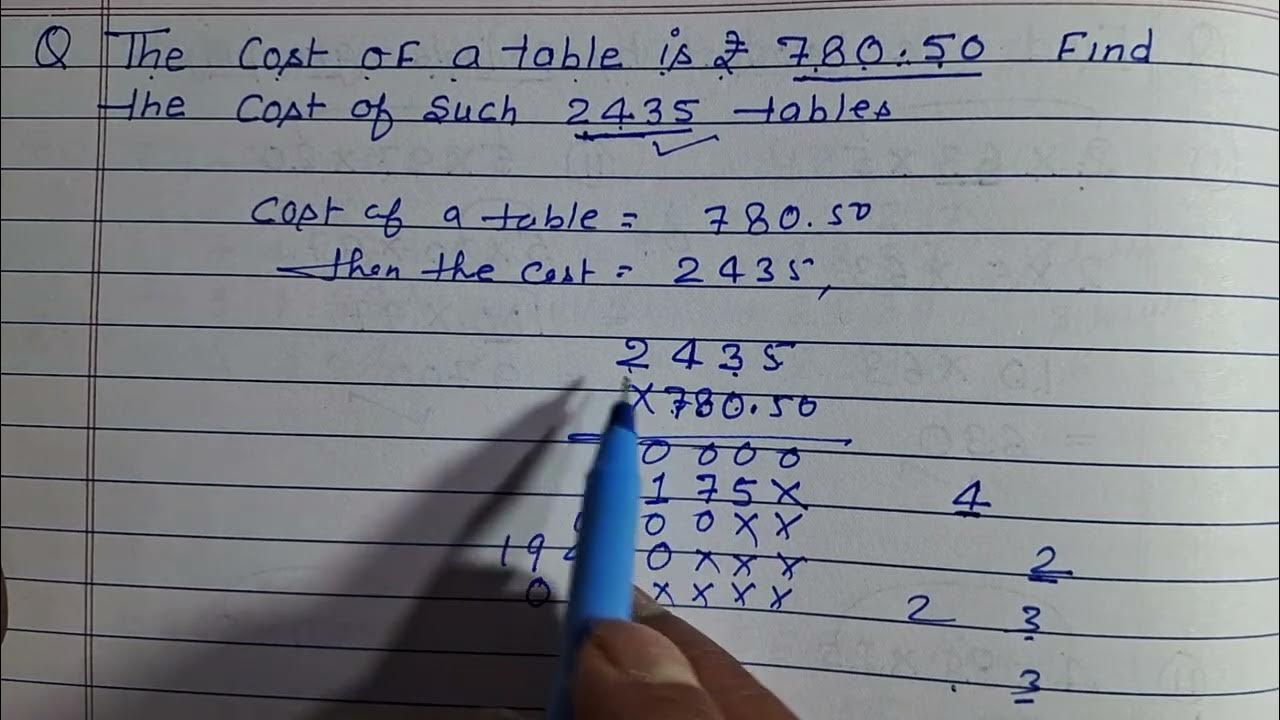 Q The Cost of a table is ₹ 780.50 Find
the Cost of Such 2435 tables
Cost of a table = 780.50
then the cost = 2435,
2435
×780.50
0000
175×
00××
19 0×××
0 ××××
4
2
2 3
3